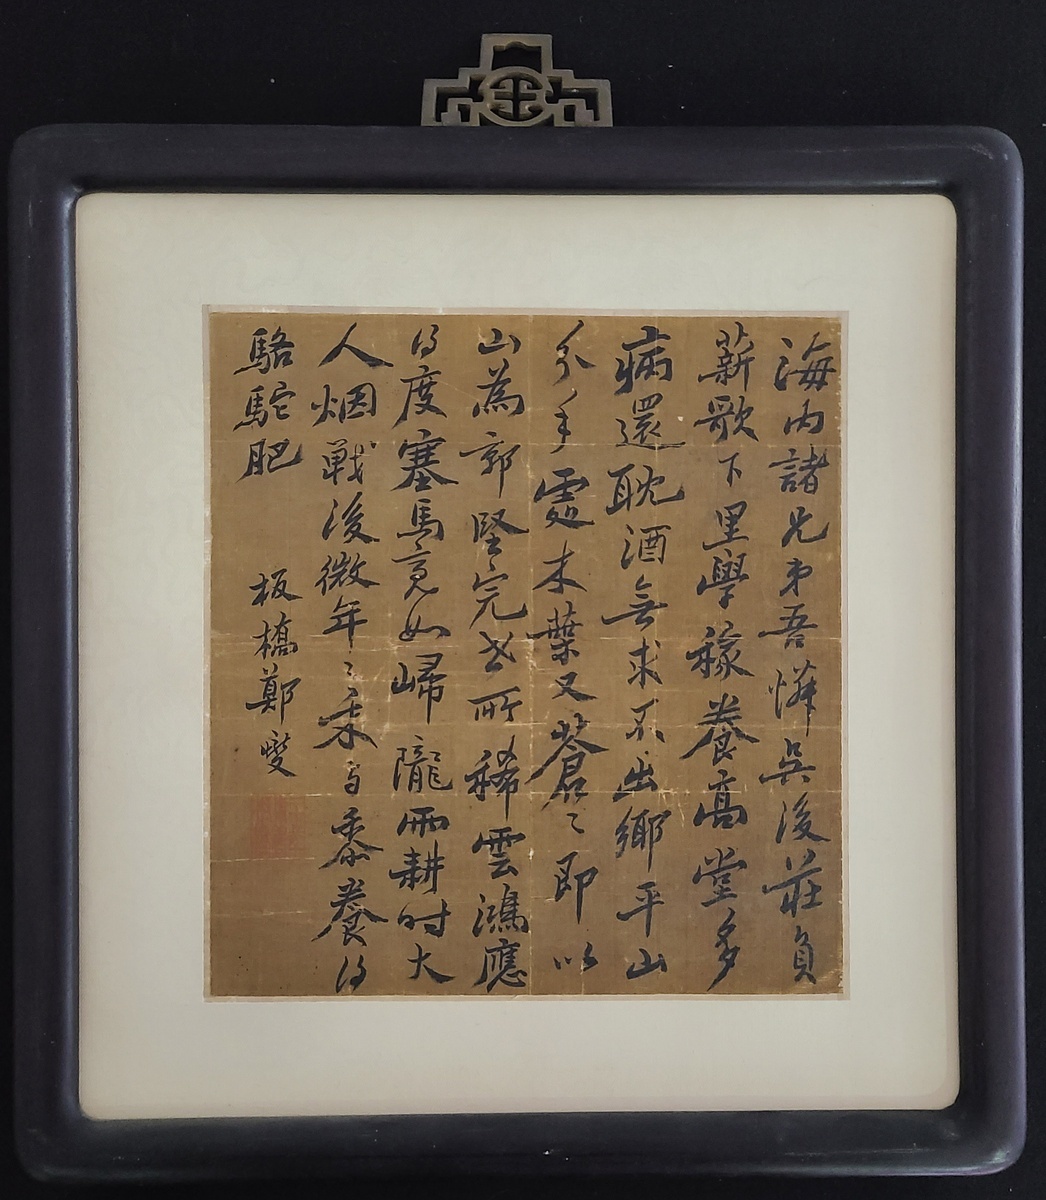 海内諸兄弟吾憐吳後莊負
薪歌下里學稼養高堂多
病還耽酒無求不出鄉平山
分手處木葉又蒼〻即以
山為郭堅完世所稀雲鴻應
得度塞馬竟如歸隴雨耕時大
人烟戰後微年〻禾與黍養得
駱駝肥
板橋鄭燮